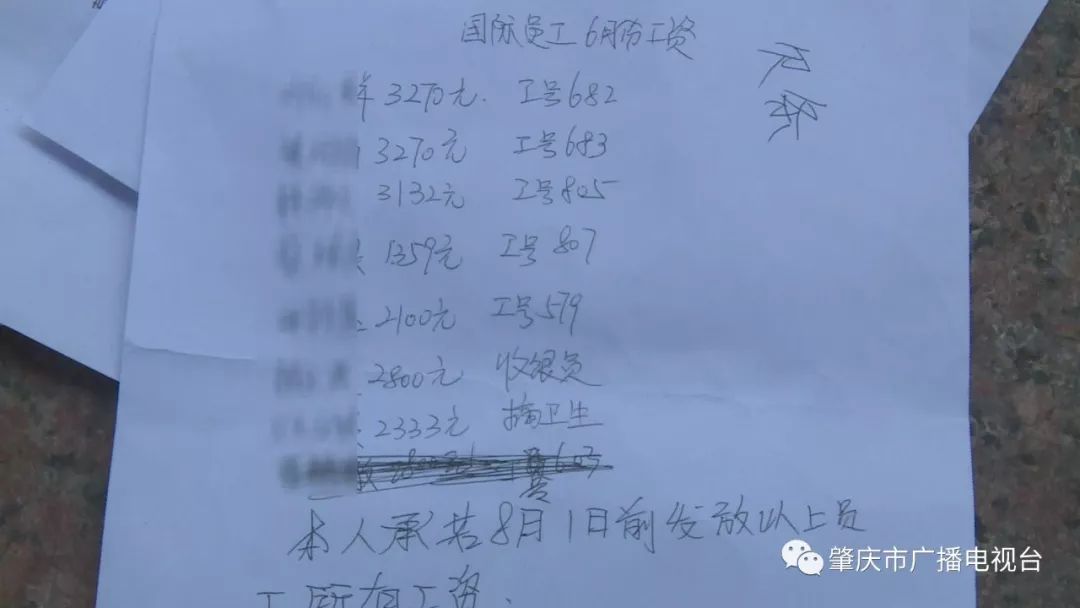 国际员工6月份工资
3270元. 工号682
3270元 工号683
3132元 工号805
1359元 工号807
2100元 工号579
2800元 收银员
2333元 搞卫生
本人承若8月1日前发放以上员
工所有工资.
肇庆市广播电视台